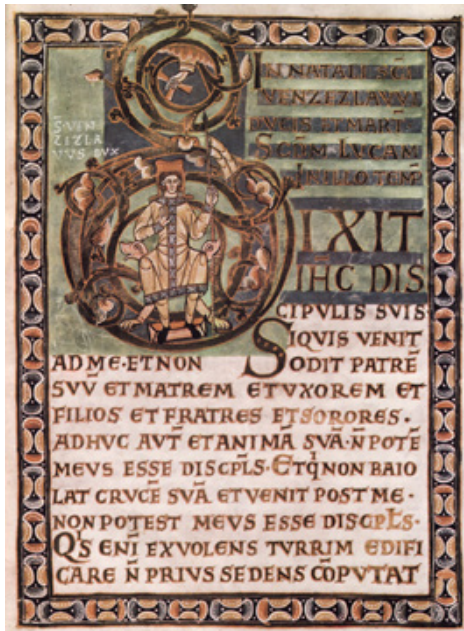 S̄. VEN
ZIZLA
VVS DVX
IN NATALI SC̄I
VENZEZLAVVI
DVCIS ET MART̄.
SCDM̄. LVCAM
IN ILLO TEMP̄
DIXIT
IH̄C DIS
CIPVLIS SVIS
SIQVIS VENIT
AD ME·ET NON ODIT PATRĒ
SVV̄ ET MATREM ET VXOREM ET
FILIOS ET FRATRES ET SORORES·
ADHVC AVT̄ ET ANIMĀ SVĀ·N̄ POTĒ
MEVS ESSE DISCPL̄S·Et qı NON BAIO
LAT CRVCĒ SVĀ ET VENIT POST ME·
NON POTEST MEVS ESSE DISCPL̄S·
QıS ENĪ EX VOLENS TVRRIM EDIFI
CARE N̄ PRIVS SEDENS CŌPVTAT